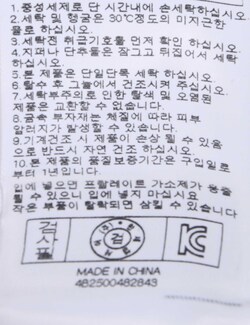 1.중성세제로 단 시간내에 손세탁하십시오
2.세탁 및 헹굼은 30℃정도의 미지근한
물로 하십시오.
3.세탁전 취급기호를 먼저 확인 하십시오.
4.지퍼나 단추등은 잠그고 뒤집어서 세탁
하십시오.
5.본 제품은 단일단독 세탁 하십시오
6.탈수 후 그늘에서 건조시켜 주십시오.
7.세탁부주의로 인한 탈색 및 오염된
제품은 교환할 수 없습니다.
8.금속 부자재는 체질에 따라 피부
알러지가 발생할 수 있습니다.
9.기계건조 시 제품이 손상 될 수 있음
으로 반드시 자연 건조 하십시오
10.본 제품의 품질보증기간은 구입일로
부터 1년입니다.
입에 넣으면 프탈레이트 가소제가 용출
될 수 있으니 입에 넣지 마십시요
작은 부품이 탈락되면 삼킬 수 있습니다
검사필
검
KC
MADE IN CHINA
482500482843